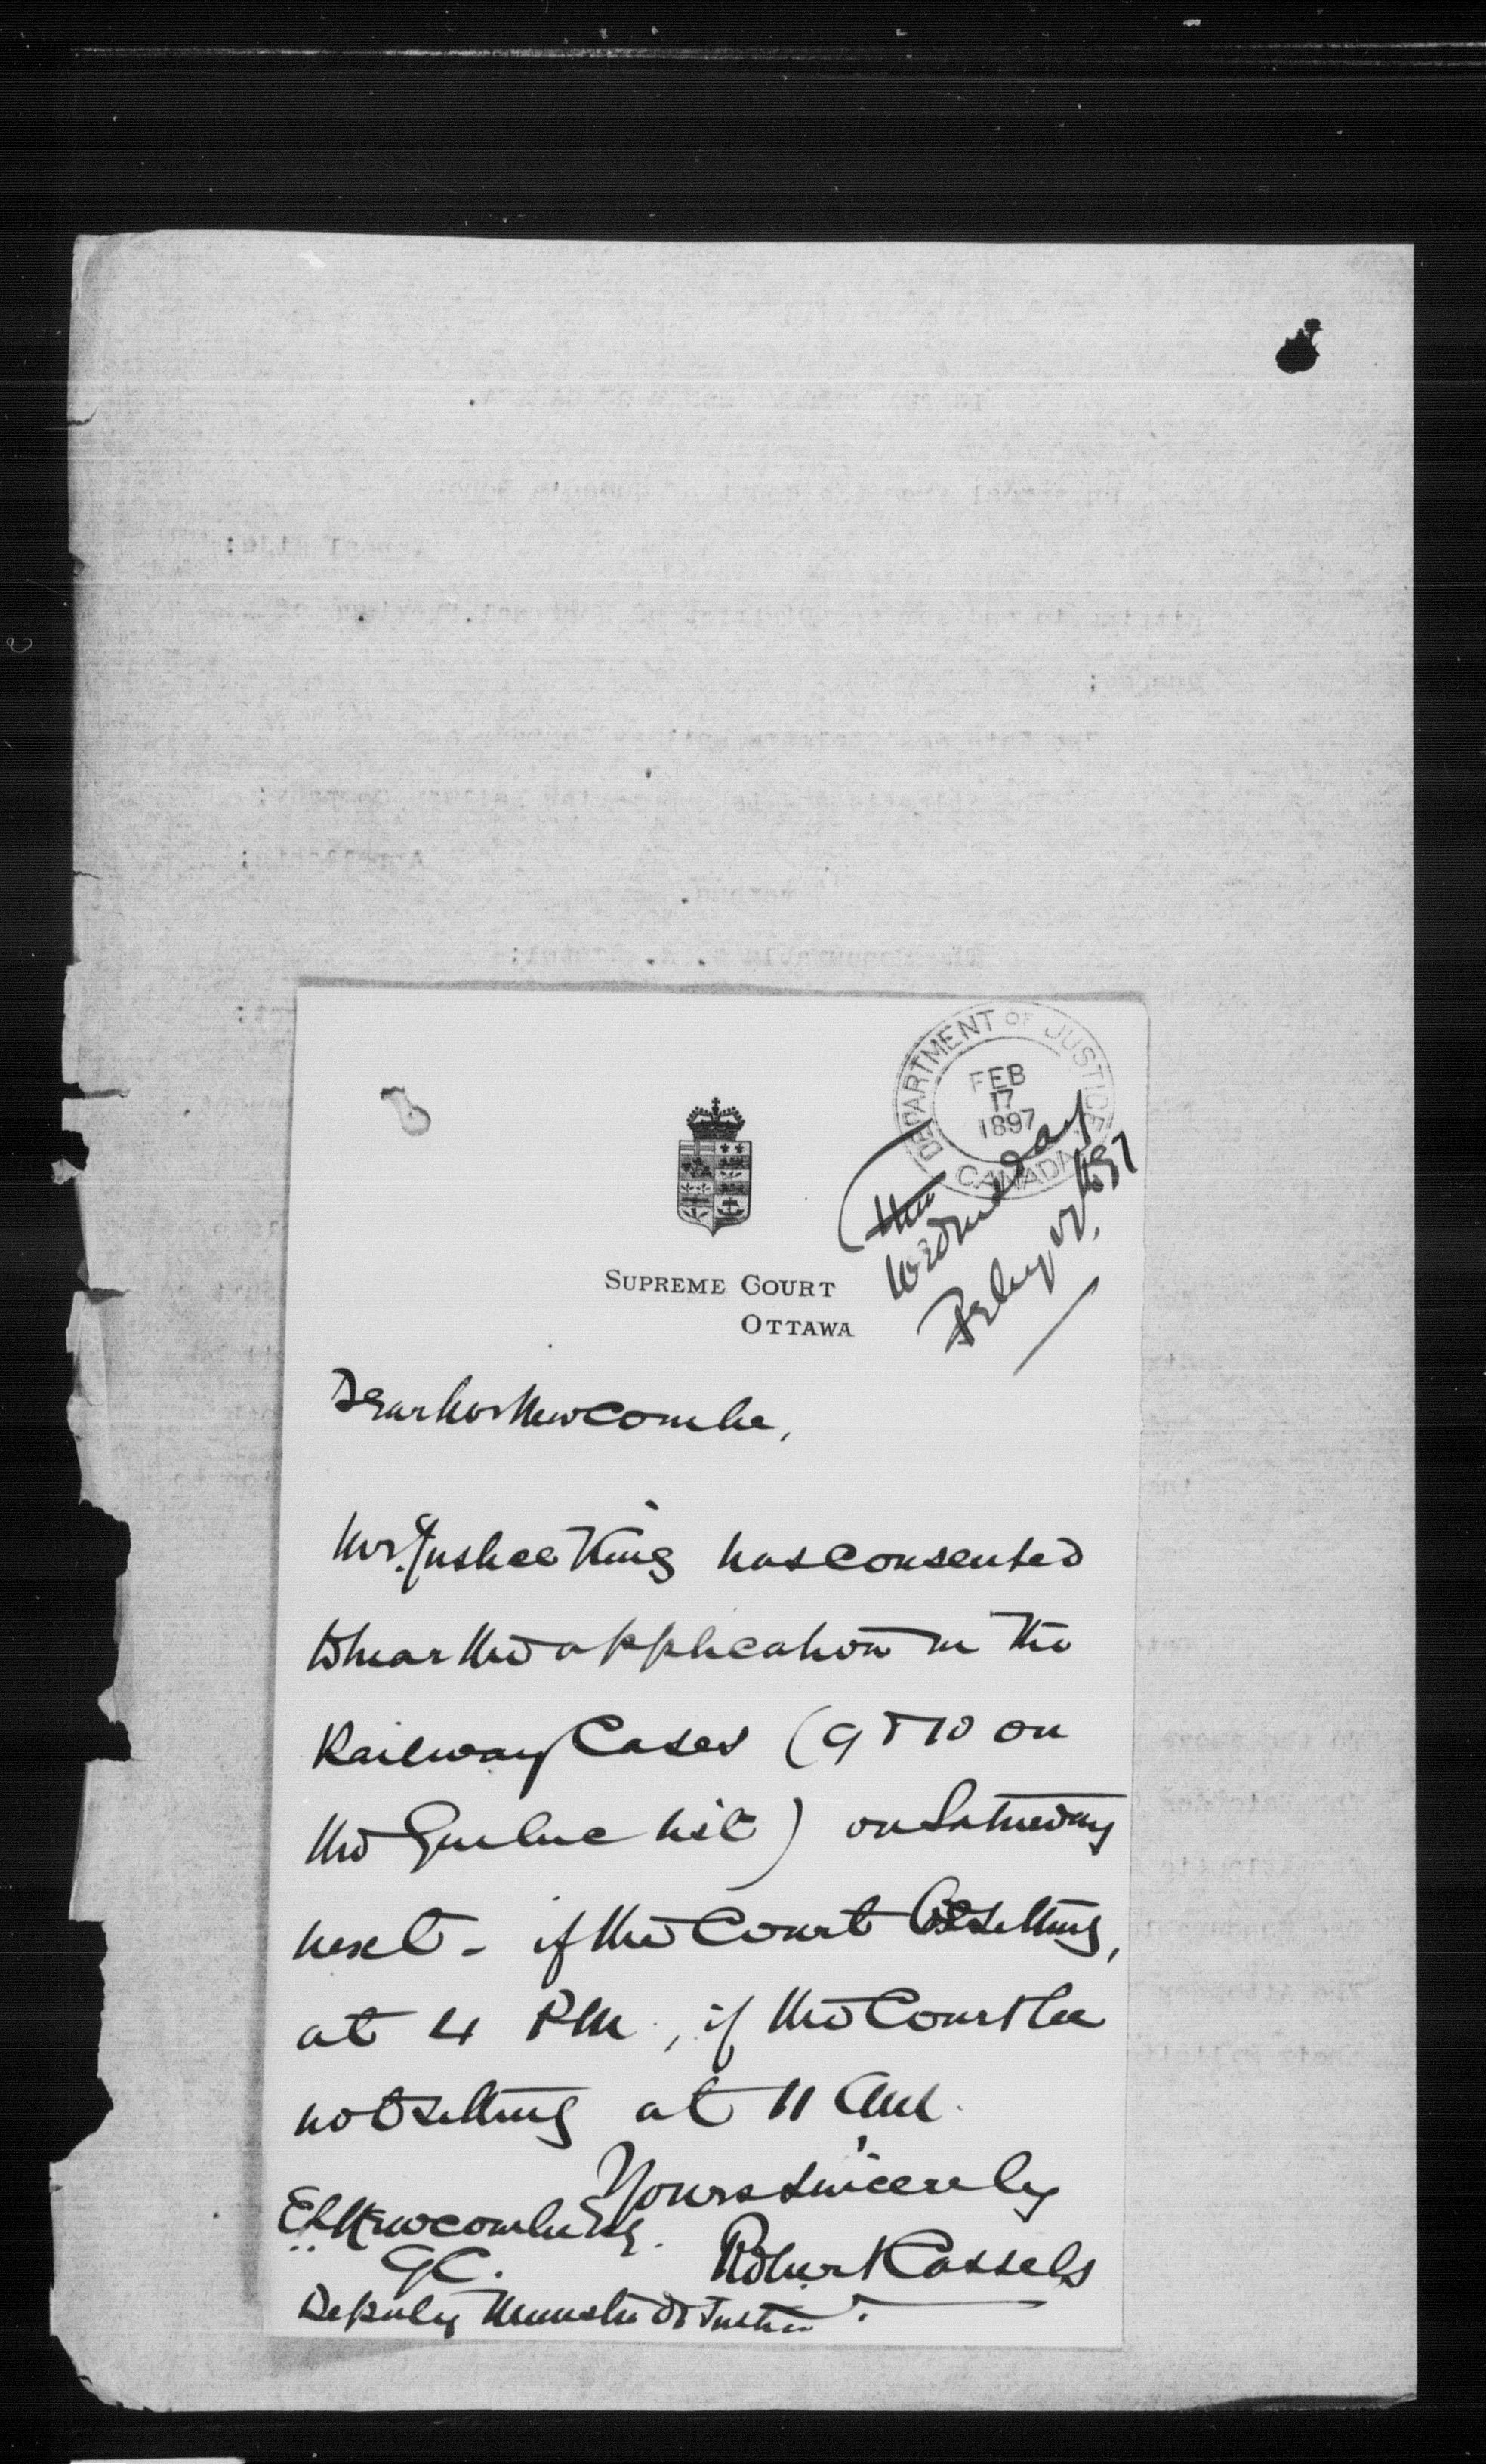 DEPARTMENT OF JUSTICE
FEB
17
1897
CANADA
SUPREME COURT
OTTAWA
Wednesday
Feby 17. 1897
Dear Mr Newcombe,
Mr. Justice King has consented
to hear the application in the
Railway Cases (9 & 10 on
the Quebec list) on Saturday
next - if the Court be sitting,
at 4 PM, if the Court be
not sitting at 11 AM.
Yours sincerely
Robert Cassels
E L Newcombe Esq.
QC.
Deputy Minister of Justice